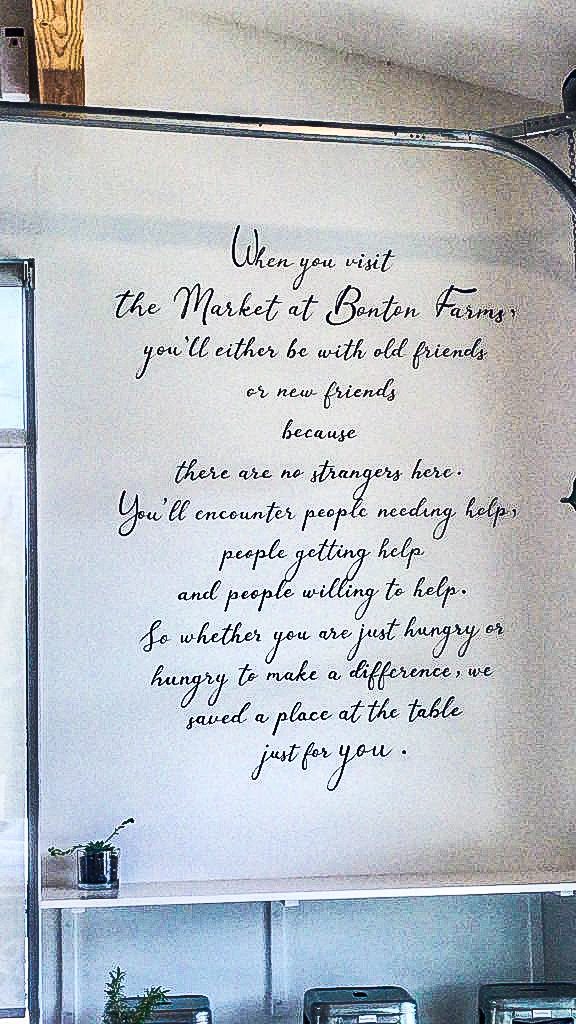 When you visit
the Market at Bonton Farms,
you'll either be with old friends
or new friends
because
there are no strangers here.
You'll encounter people needing help,
people getting help
and people willing to help.
So whether you are just hungry or
hungry to make a difference, we
saved a place at the table
just for you.